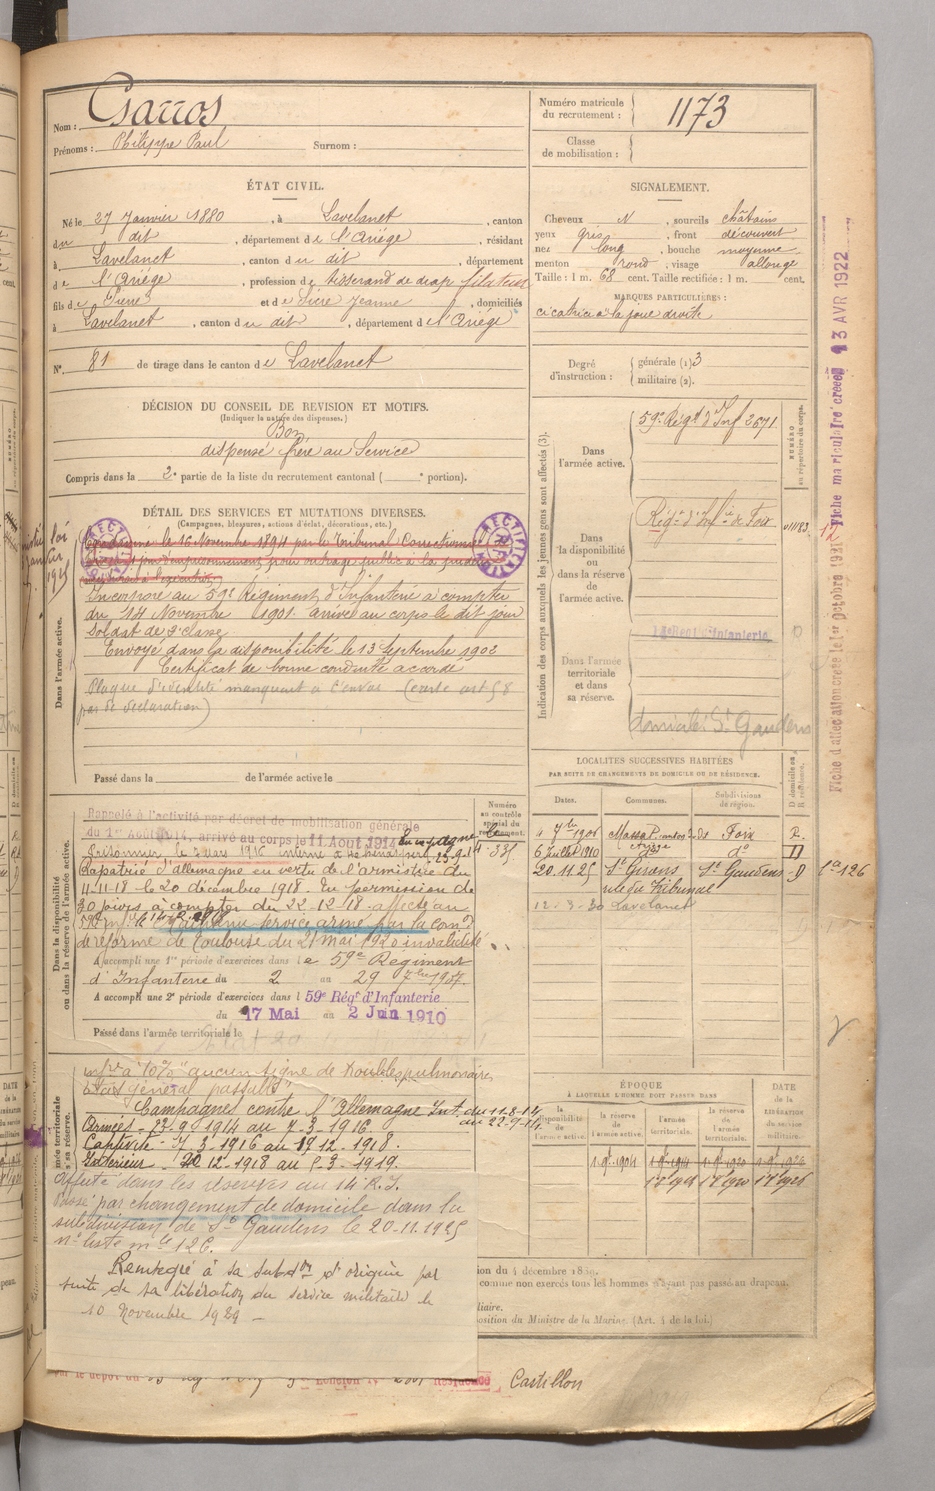 Nom : Garros
Prénoms : Philippe Paul Surnom :
Numéro matricule du recrutement : 1173
Classe de mobilisation :
ÉTAT CIVIL.
Né le 27 Janvier 1880, à Lavelanet, canton
du dit, département de l'Ariége, résidant
à Lavelanet, canton du dit, département
de l'Ariége, profession de tisserand de drap fileteur
fils de Pierre et de Sicre Jeanne, domiciliés
à Lavelanet, canton du dit, département de l'Ariége
N° 81 de tirage dans le canton de Lavelanet
SIGNALEMENT.
Cheveux N, sourcils châtains
yeux gris, front découvert
nez long, bouche moyenne
menton rond, visage allongé
Taille : 1 m. 68 cent. Taille rectifiée : 1 m. cent.
MARQUES PARTICULIÈRES :
cicatrice à la joue droite
Degré d'instruction : générale (1) 3
militaire (2).
DÉCISION DU CONSEIL DE REVISION ET MOTIFS.
(Indiquer la nature des dispenses.)
Bon
dispensé frère au Service
Compris dans la 2e partie de la liste du recrutement cantonal ( e portion).
DÉTAIL DES SERVICES ET MUTATIONS DIVERSES.
(Campagnes, blessures, actions d'éclat, décorations, etc.)
RECTIFICATION
RECTIFICATION
Condamné le 16 Novembre 1894 par le Tribunal Correctionnel
jour d'emprisonnement pour outrage public à la pudeur
Dans l'armée active.
Incorporé au 59e Régiment d'Infanterie à compter
du 14 Novembre 1901 arrivé au corps le dit jour
Soldat de 2e classe
Envoyé dans la disponibilité le 13 Septembre 1902
Certificat de bonne conduite accordé
Plaque d'identité manquant à l'envoi (carte art 58
par de déclaration)
Passé dans la de l'armée active le
Indication des corps auxquels les jeunes gens sont affectés (3).
NUMÉRO au répertoire du corps.
Dans l'armée active.
59e Régt d'Inf 2671
Dans la disponibilité ou dans la réserve de l'armée active.
Régt d'Infie de Foix
Dans l'armée territoriale et dans sa réserve.
14e Régt d'Infanterie
domicilié St Gaudens
Fiche d'affectation créée le 1er Octobre 1921
Fiche matriculaire créée le 13 AVR 1922
Dans la disponibilité ou dans la réserve de l'armée active.
Numéro au contrôle spécial du recrutement.
Rappelé à l'activité par décret de mobilisation générale
du 1er Août 1914, arrivé au corps le 11 Aout 1914 En campagne le
Prisonnier le 7 mars 1916 interné à 23-9-14
Rapatrié d'allemagne en vertu de l'armistice du
11-11-18 le 20 décembre 1918. En permission de
30 jours à compter du 22-12-18 affecté au
service armé par la comon
de réforme de Toulouse du 21 mai 1920 invalidité
A accompli une 1re période d'exercices dans le 59e Régiment
d'Infanterie du 2 au 29 7bre 1907.
A accompli une 2e période d'exercices dans l 59e Régt d'Infanterie
du 17 Mai au 2 Juin 1910
Passé dans l'armée territoriale le
LOCALITÉS SUCCESSIVES HABITÉES
PAR SUITE DE CHANGEMENTS DE DOMICILE OU DE RÉSIDENCE.
Dates. Communes. Subdivisions de région. D domicile ou R résidence.
4 7bre 1906 Massat Foix R
6 Juillet 1910 do do D
20.11.25 St Girons St Gaudens D
rue du Tribunal
12-3-30 Lavelanet
126
infre à 10% "aucun signe de troubles pulmonaires
Etat général passable"
Campagnes contre l'Allemagne Int. du 11-8-14
au 22-9-14.
Armées - 23-9-1914 au 7-3-1916
Captivité - 7-3-1916 au 19-12-1918.
Intérieur - 20 12-1918 au 5-3-1919.
Affecté dans les réserves au 14e R.I.
Passé par changement de domicile dans la
subdivision de St Gaudens le 20-11-1925
n° liste mle 126.
Réintégré à sa subdon d'origine par
suite de sa libération du service militaire le
10 Novembre 1929 -
ÉPOQUE
À LAQUELLE L'HOMME DOIT PASSER DANS
la disponibilité de l'armée active. la réserve de l'armée active. l'armée territoriale. la réserve de l'armée territoriale. DATE de la LIBÉRATION du service militaire.
1 9bre 1904 1 9bre 1914 1 9bre 1920 1 9bre 1926
comme non exercés tous les hommes n'ayant pas passé au drapeau.
position du Ministre de la Marine. (Art. 4 de la loi.)
Résidence Castillon